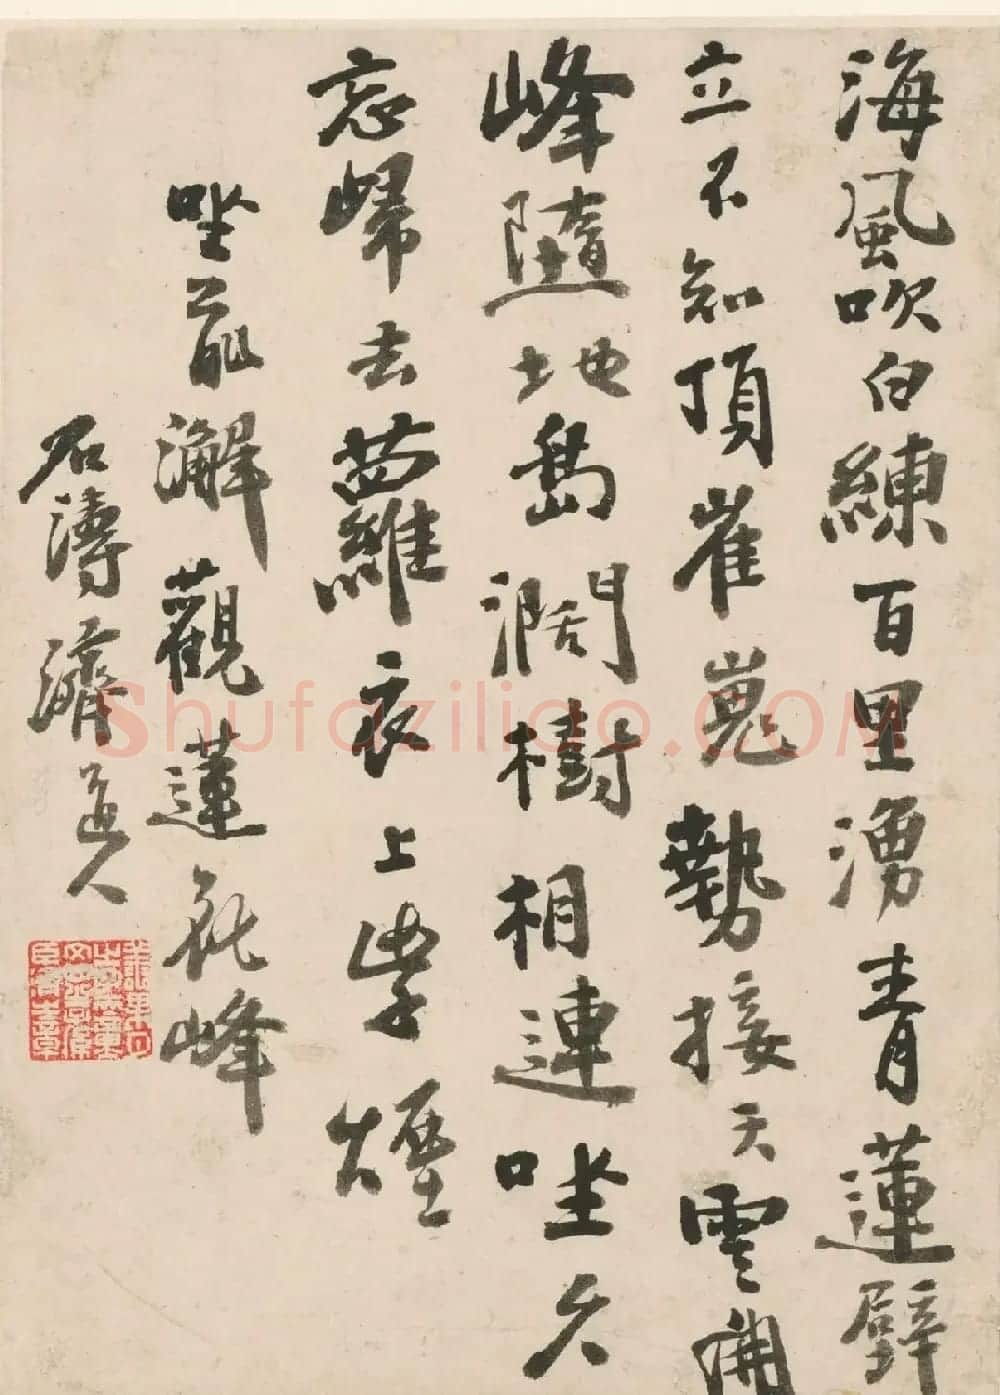 海風吹白練百里湧青蓮壁
立不知頂崔嵬勢接天雲開
峰墮地島濶樹相連坐久
忘歸去蘿衣上紫煙
坐前澥觀蓮花峰
石濤濟道人
Shufaziliao.COM